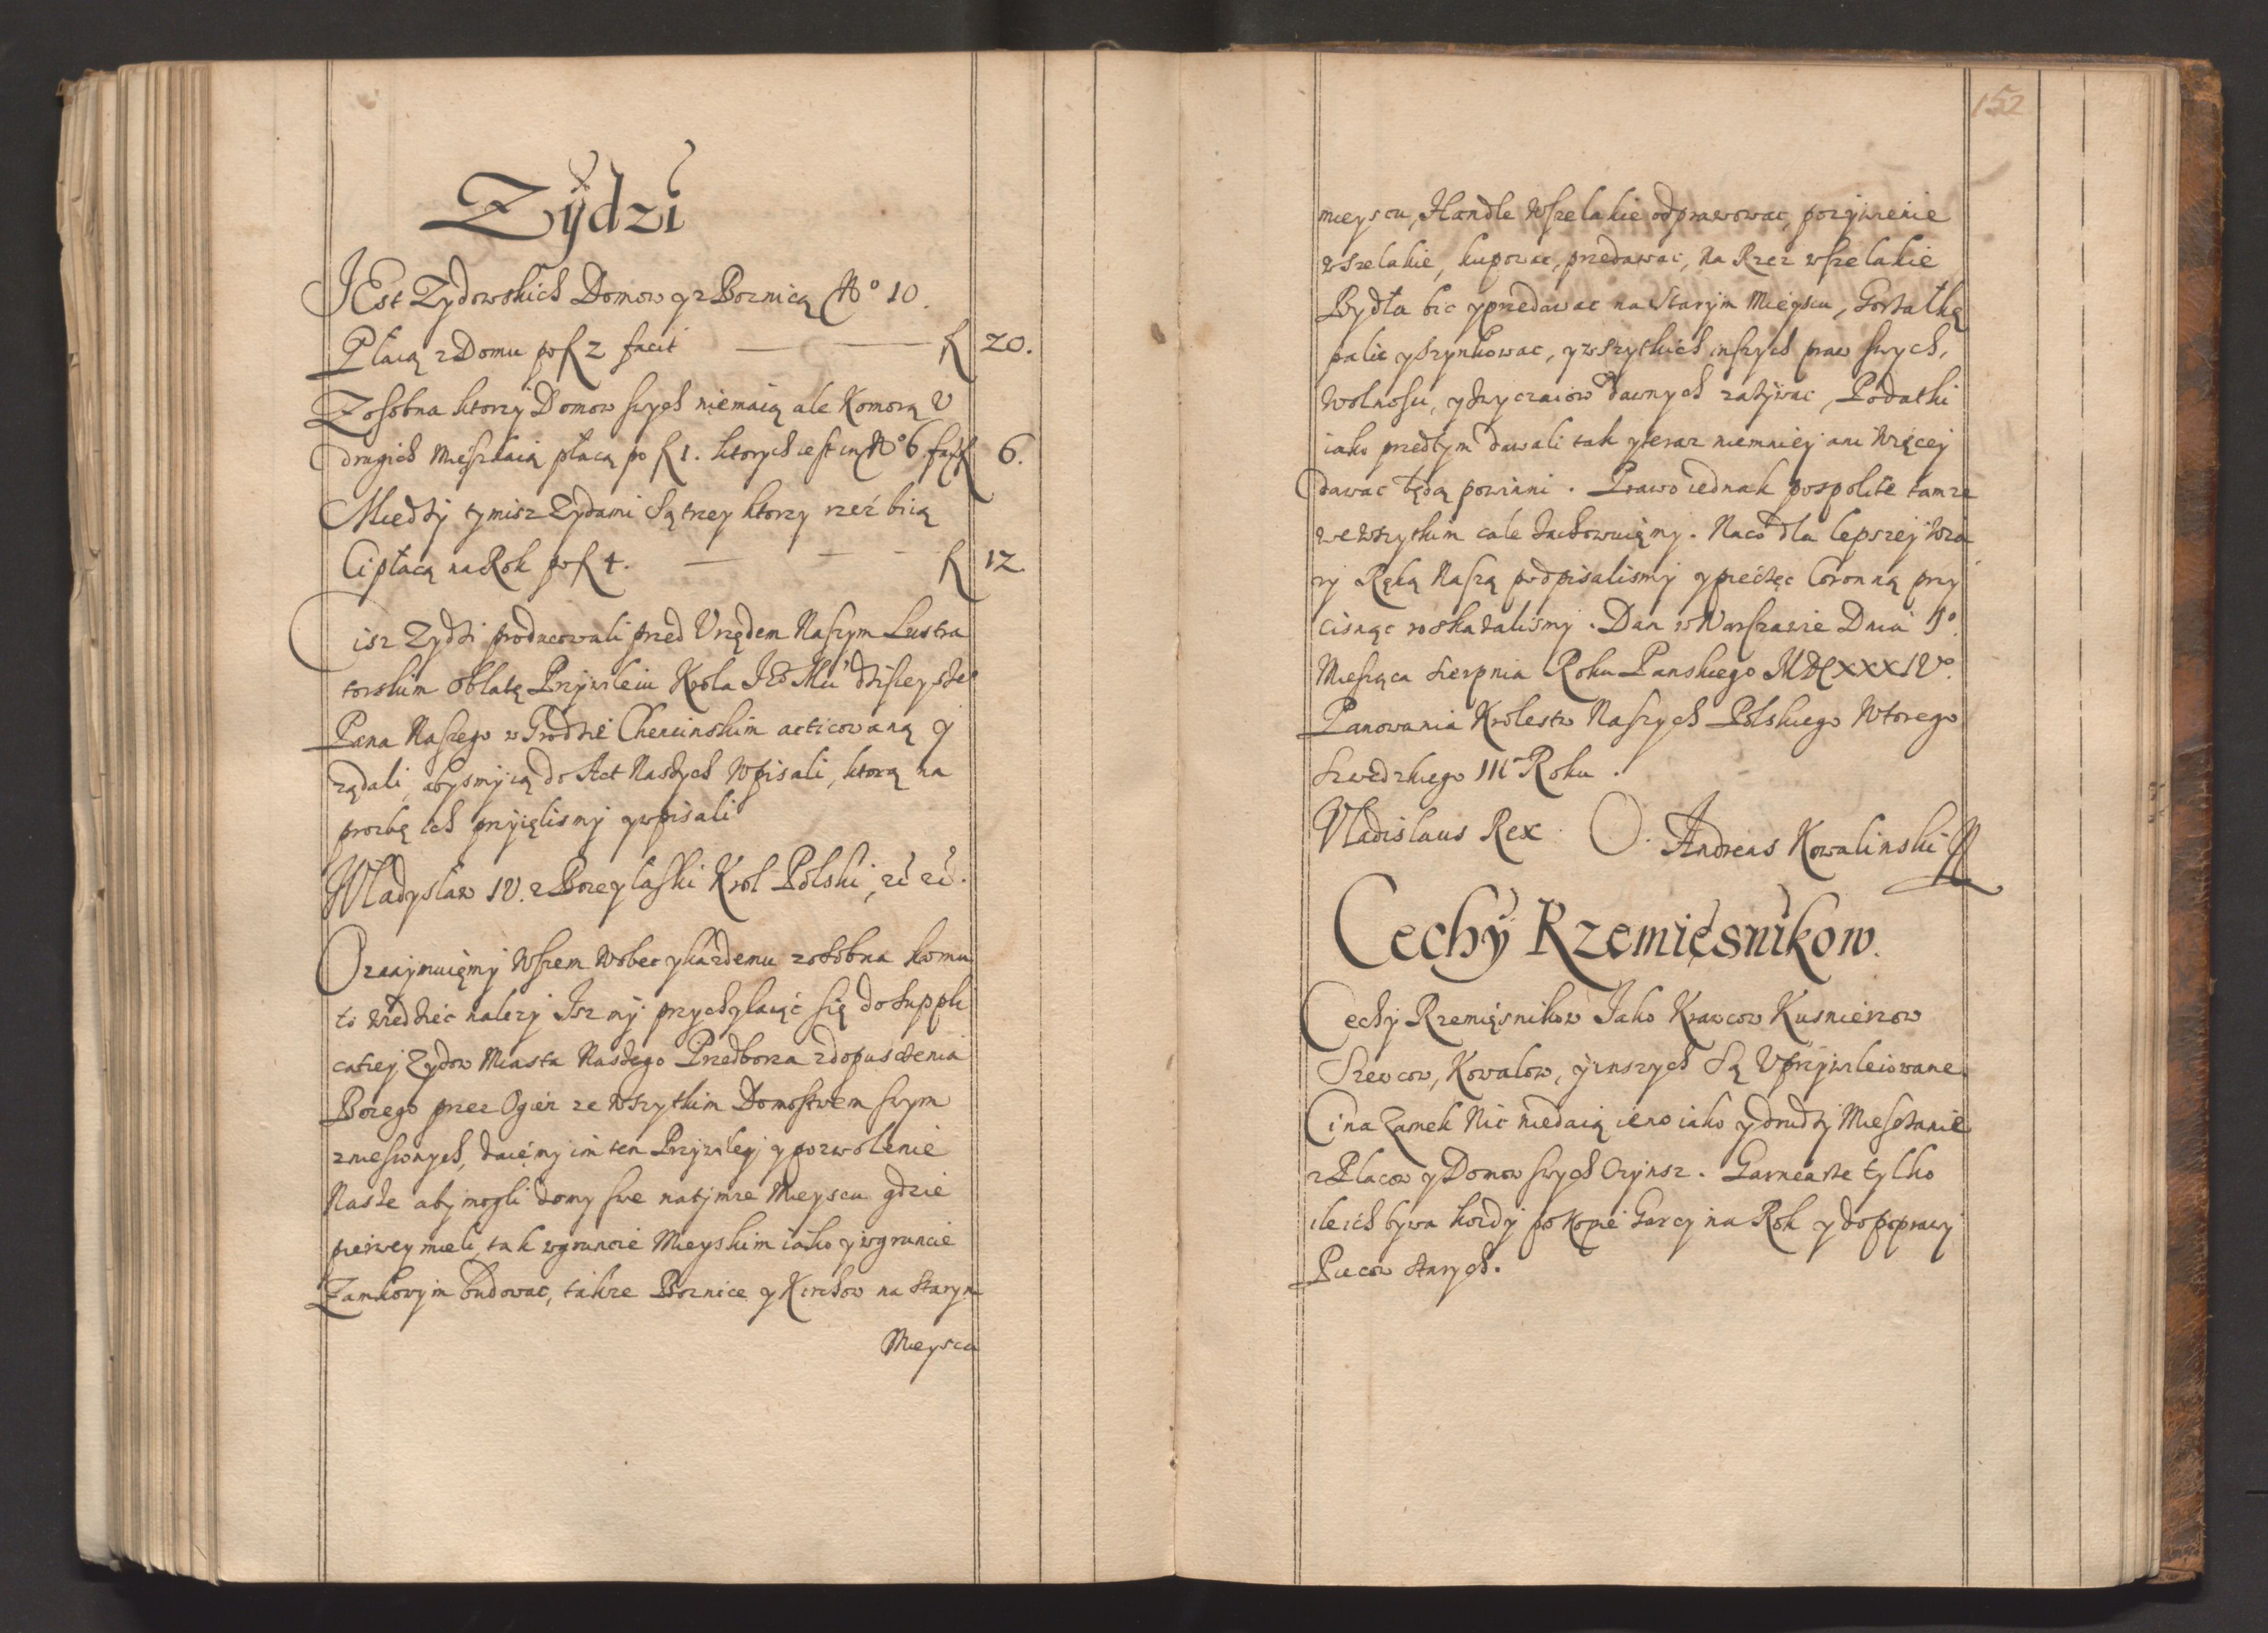 Zÿdzi
JEst Zydowskich Domow y z Boznicą No 10.
Płacą z Domu po f 2 facit — — f 20.
Zosobna ktorzy Domow swych niemaią ale Komorą V
drugich Mieszkaią płacą po f 1. ktorych iest in No 6. facit f 6.
Miedzy tymisz Zydami są trzey ktorzy rzez biią
Ci płacą na Rok po f 4. — — - f 12
Cisz Zydzi producowali przed Vrzędem Naszym Lustra
torskim Oblatę Przywileiu Krola Je° Mći dzisieyszeº
Pana Naszego w Grodzie Chencinskim acticowaną y
ządali, abysmy ią do Act Naszych Wpisali, ktorą na
prozbę ich przyięlismy y wpisali
Wladyslaw IV. z Bozey łaski Krol Polski, etć etć.
Oznaymuięmy Wszem Wobec y kazdemu zosobna komu
to wiedzieć nalezy Isz my przychylaiąć się do suppli
catiey Zydow Miasta Naszego Przedborza z dopusczenia
Bozego przez Ogień ze wszytkim Domostwem swym
zniesionych, daięmy im ten Przywiley y pozwolenie
Nasze aby mogli domy swe na tymze Mieyscu gdzie
pierwey mieli, tak w gruncie Mieyskim iako y w gruncie
Zamkowym budowac, takze Boznice y Kirchow na starym
Mieyscu
152
mieyscu, Handle Wszelakie odprawowac, pozywienie
wszelakie, kupowac, przedawac, na Rzez wszelakie
Bydła bic y przedawac na Starym Mieyscu, Gorzałkę
palic y szynkowac, y wszytkich inszych praw swych,
Wolnosci, y zwyczaiow dawnych zazywac, Podatki
iako przedtym dawali tak y teraz niemniey ani więcey
dawac będą powinni. Prawo iednak pospolite tamze
we wszytkim cale zachowuięmy. Naco dla lepszey wia
ry Ręką Naszą podpisalismy y pieczęc Coronną przy
cisnąc roskazalismy. Dan w Warszawie Dnia 1º.
Miesiąca Sierpnia Roku Panskiego MDCXXXIVº.
Panowania Krolestw Naszych Polskiego Wtorego
Szwedzkiego III Roku.
Vladislaus Rex. Andreas Kowalinski
Cechÿ Rzemięsnikow.
Cechy Rzemięsnikow Jako Krawcow Kusnierzow
Szewcow, Kowalow, y inszych są Vprzywileiowane.
Ci na Zamek Nic niedaią ieno iako y drudzy Miesczanie
z Placow y Domow swych Czynsz. Garncarze tylko
ile ich bywa kozdy po kopie Garcy na Rok y do poprawy
Piecow starych.